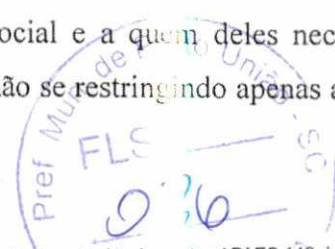 ocial e a quem deles nec
ão se restringindo apenas a
Pref Mun. de Porto União - SC
FLS
026